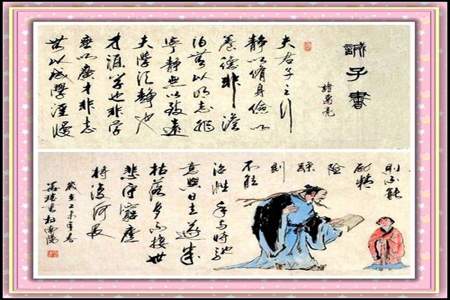 誡子書
諸葛亮
夫君子之行
静以修身儉以
養德非澹
泊無以明志非
寧静無以致遠
夫學須静也
才須學也非學
無以廣才非志
無以成學淫慢
則不能
勵精
險
躁
則
不能
治性年与時馳
意與日去遂成
枯落多不接世
悲守窮廬
將復何及